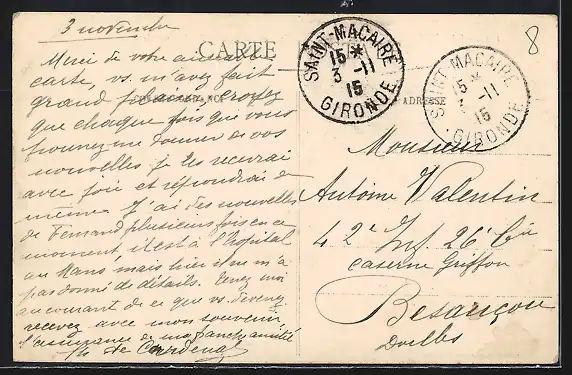 3 novembre
CARTE
Merci de votre aimable
carte, vs. m'avez fait
grand plaisir, croyez
que chaque fois que vous
pourrez me donner de vos
nouvelles je les recevrai
avec joie et répondrai de
même. J'ai des nouvelles
de Fernand plusieurs fois en ce
moment, il est à l'hopital
au Mans, mais hier il ne m'a
pas donné de détails. Tenez moi
au courant de ce que vs. devenez
recevez avec mon souvenir
l'assurance de ma franche amitié
de Cardenal
SAINT-MACAIRE
15 *
3 -11
15
GIRONDE
SAINT-MACAIRE
15 *
3 -11
15
GIRONDE
8
ADRESSE
Monsieur
Antoine Valentin
42e Inf. 26e Cie
caserne Griffon
Besançon
Doubs